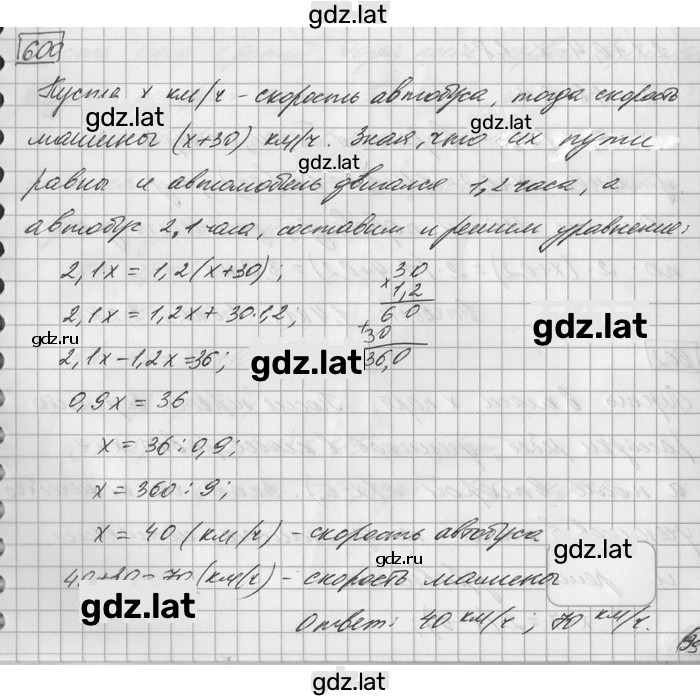 gdz.lat
600
Пусть x км/ч - скорость автобуса, тогда скорость
gdz.lat
gdz.lat
машины (x+30) км/ч. Зная, что их пути
gdz.lat
равны и автомобиль двигался 1,2 часа, а
автобус 2,1 часа, составим и решим уравнение:
2,1x = 1,2(x+30);
30
× 1,2
2,1x = 1,2x + 30·1,2;
60
gdz.lat
+ 30
gdz.ru
2,1x - 1,2x = 36;
36,0
gdz.lat
0,9x = 36
x = 36 : 0,9;
x = 360 : 9;
x = 40 (км/ч) - скорость автобуса
gdz.lat
40+30=70 (км/ч) - скорость машины
gdz.lat
Ответ: 40 км/ч; 70 км/ч.
gdz.lat